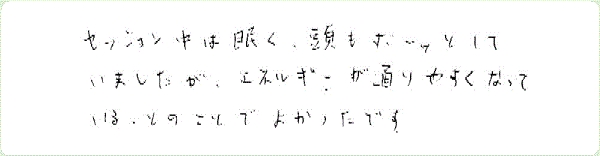 セッション中は眠く、頭もボーッとして
いましたが、エネルギーが通りやすくなって
いる、とのことでよかったです